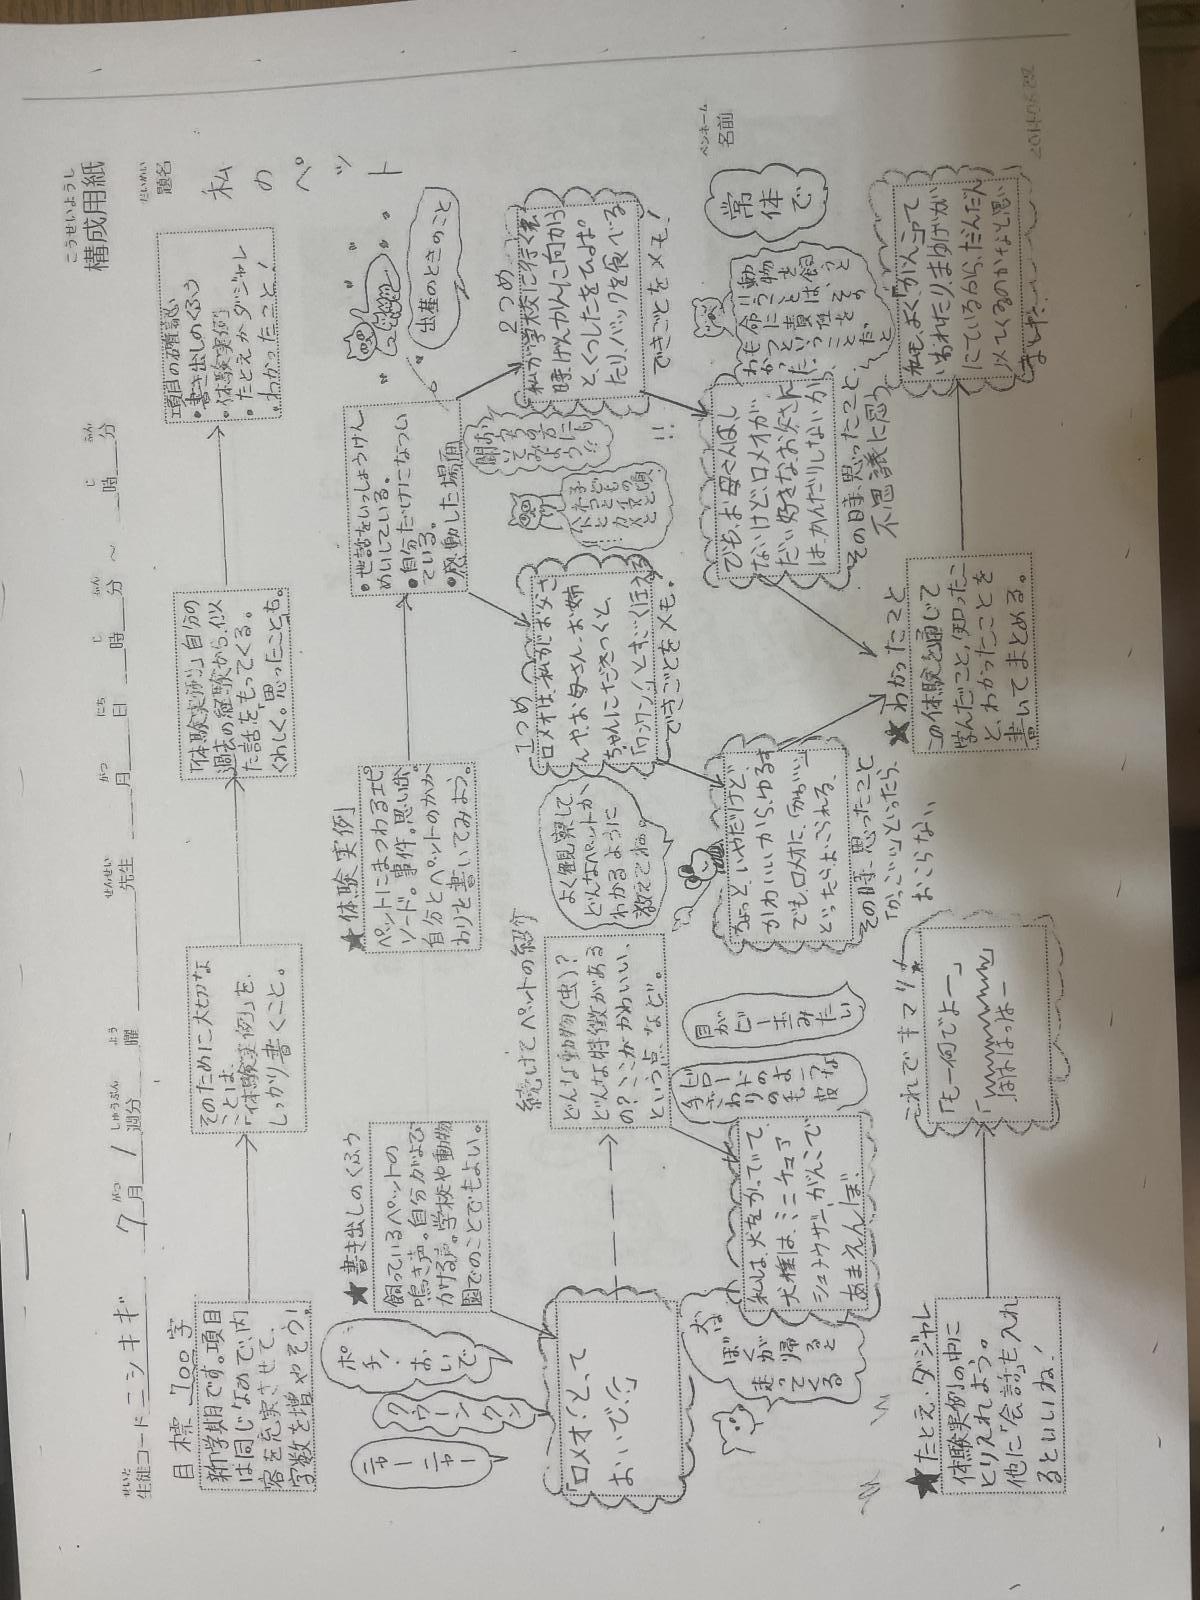 こうせいようし
構成用紙
せいと
生徒コード ニシキギ
7月 1 週分 曜 先生 月 日 時 分 ～ 時 分
だいめい
題名
私のペット
ペンネーム
名前
目標 700 字
新学期です。項目
は同じなので、内
容を充実させて、
字数を増やそう！
そのために大切な
ことは、
「体験実例」を、
しっかり書くこと。
「体験実例」自分の
過去の経験から、似
た話をもってくる。
くわしく。思ったことも。
項目の確認
・書き出しのくふう
・体験実例
・たとえかダジャレ
・わかったこと！
★書き出しのくふう
飼っているペットの
鳴き声。自分がよび
かける声。学校や動物
園でのことでもよい。
ニャーニャー
クウーンクン
ポチ！おいで
「ロメオ！とって
おいで！」
続けてペットの紹介
どんな動物（虫）？
どんな特徴がある
の？ここがかわいい、
という点、など。
よく観察して、
どんなペットか、
わかるように
教えてね。
犬は
ぼくが帰ると
走ってくる
私は、犬をかっていて、
犬種は、ミニチュア
シュナウザー、がんこで
あまえんぼ。
目がビー玉みたい
★体験実例
ペットにまつわるエピ
ソード。事件。思い出。
自分とペットのかか
わりを書いてみよう。
・世話をいっしょうけん
めいしている。
・自分だけになつい
ている。
・感動した場面
出産のときのこと
1つめ
ロメオは、私がお父さ
んや、お母さん、お姉
ちゃんにだきつくと、
「ワンワン！」とすごくほえる
できごとをメモ。
2つめ
私が学校に行く
時、げんかんに向かう
と、くつしたをひっぱっ
たり、バックを食べる
できごとをメモ！
ちょっと、いやだけど、
かわいいから、ゆるす
でも、ロメオに、「かわいい」
といったらよろこばれる、
その時、思ったこと
「かっこいい」といったら、
おこらない
でも、お母さんはし
ないけど、ロメオが
だい好きなお父さんに
は、かんだりしないから
その時、思ったこと、
不思議に思う
常体で
★わかったこと
この体験を通じて
学んだこと、知ったこ
と、わかったことを
書いてまとめる。
私も、よく「がんこ」って
いわれたり、まゆげが
にているから、だんだん
以てくるのかなと思い
ました。
★たとえ・ダジャレ
体験実例の中に
とり入れよう。
他に「会話」も入れ
るといいね！
これでキマリ！
「もー何でよー」
はははっはー